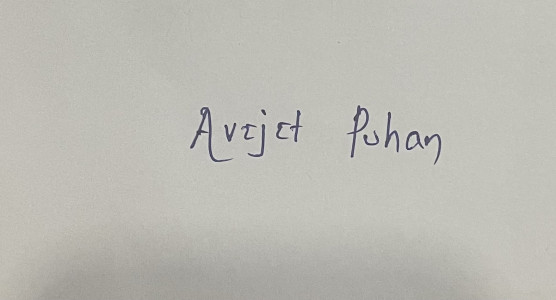 Avijit Puhan